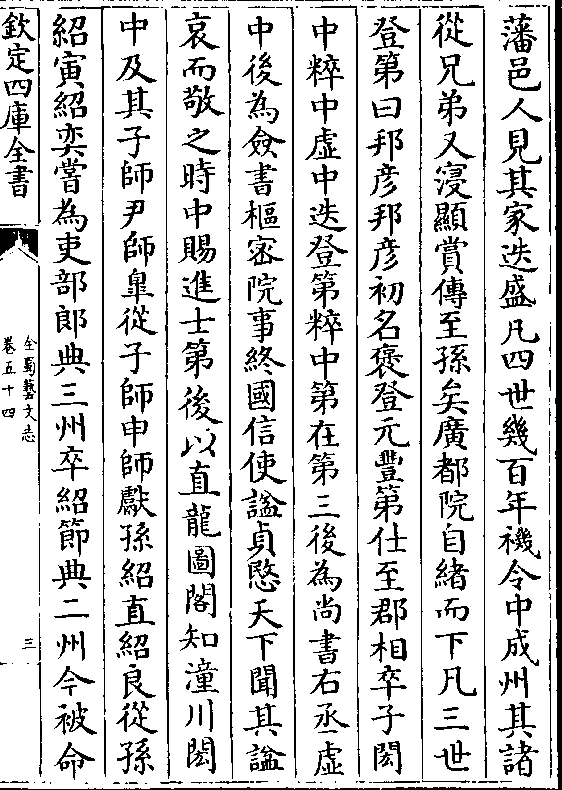 藩邑人見其家迭盛凡四世幾百年禨令中成州其諸
從兄弟又寖顯賞傳至孫矣廣都院自緒而下凡三世
登第曰邦彦邦彦初名褒登元豐第仕至郡相卒子閎
中粹中虛中迭登第粹中第在第三後為尚書右丞虛
中後為僉書樞密院事終國信使諡貞愍天下聞其諡
哀而敬之時中賜進士第後以直龍圖閣知潼川閎
中及其子師尹師臯從子師申師獻孫紹直紹良從孫
紹寅紹奕嘗為吏部郎典三州卒紹節典二州今被命
欽定四庫全書
全蜀藝文志
卷五十四
三